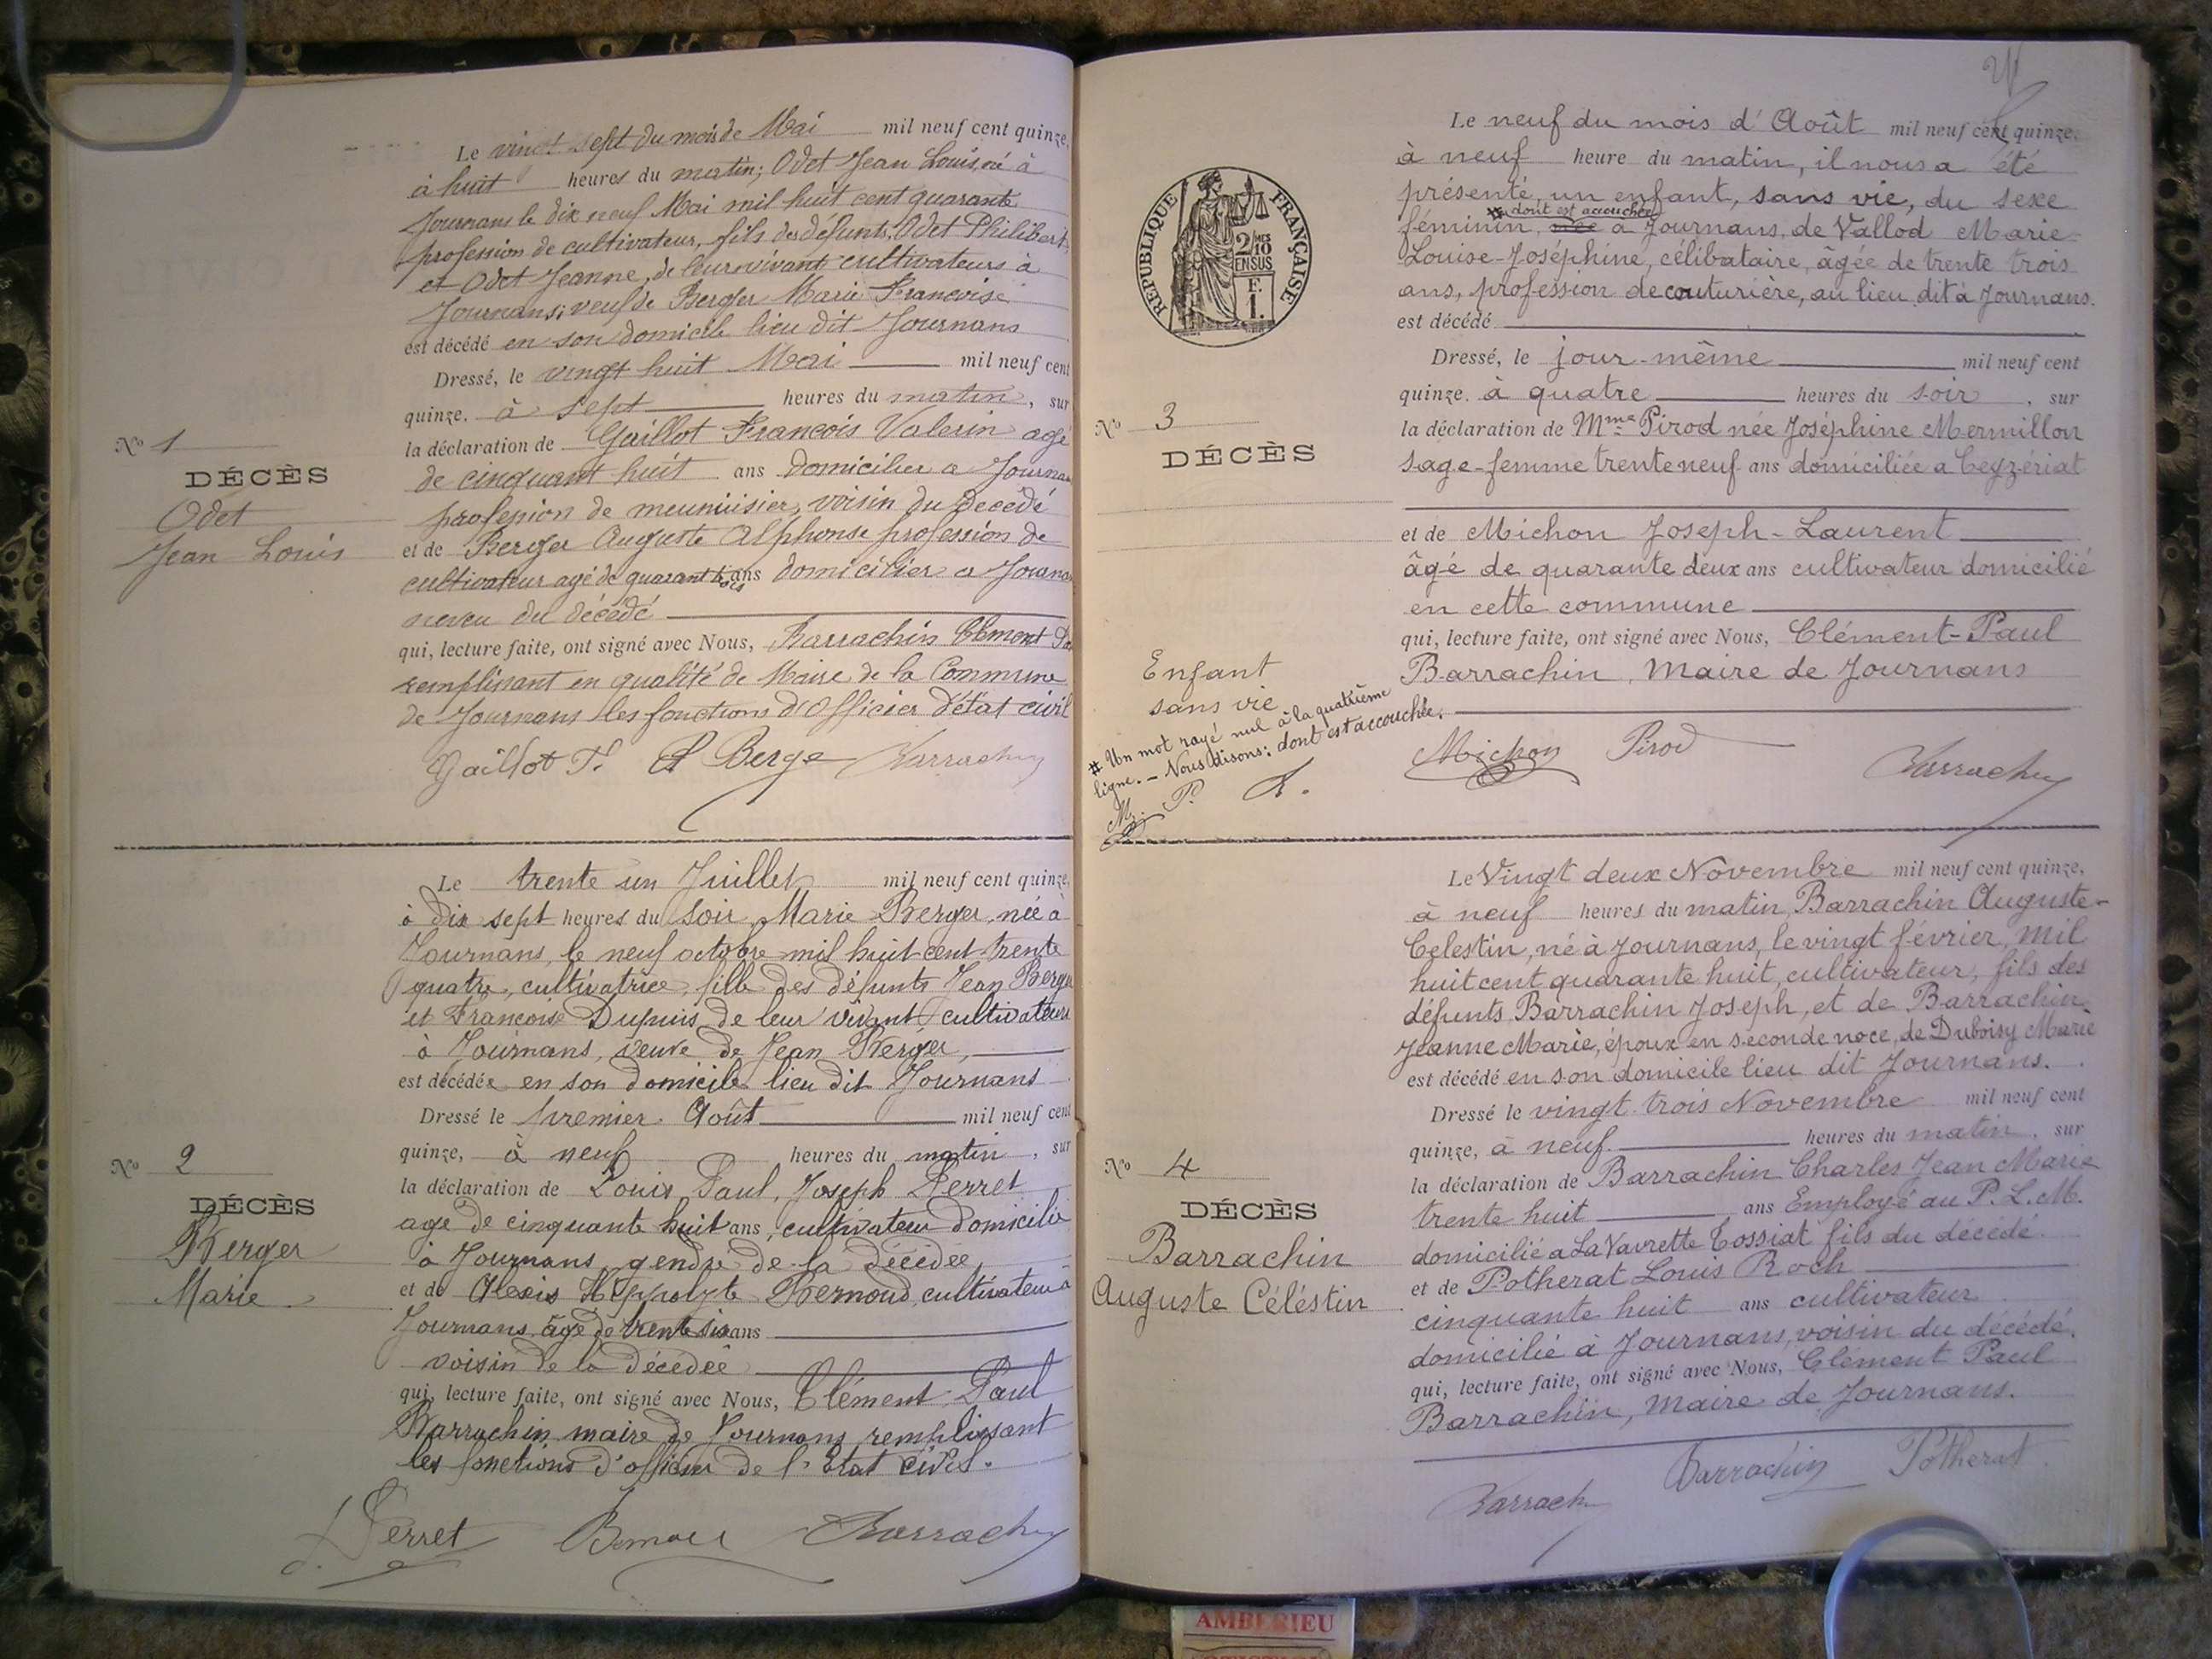 Le vingt sept du mois de Mai mil neuf cent quinze,
à huit heures du matin; Odet Jean Louis, né à
Journans le dix neuf Mai mil huit cent quarante
profession de cultivateur, fils des défunts, Odet Philibert
et Odet Jeanne, de leur vivant cultivateurs à
Journans; veuf de Berger Marie Francoise
est décédé en son domicile lieu dit Journans
Dressé, le vingt huit Mai mil neuf cent
quinze. à sept heures du matin, sur
la déclaration de Gaillot Francois Valerin agé
de cinquant huit ans domicilier a Journa
profession de meunisier, voisin du décédé
et de Berger Auguste Alphonse profession de
cultivateur agé de quarant trois ans domicilier a Journa
neveu du décédé
qui, lecture faite, ont signé avec Nous, Barrachin Clément
remplissant en qualité de Maire de la Commune
de Journans les fonctions d'Officier d'état civil
Gaillot F. A Berge Barrachin
No 1
DÉCÈS
Odet
Jean Louis
Le trente un Juillet mil neuf cent quinze,
à dix sept heures du soir, Marie Berger, née à
Journans, le neuf octobre mil huit cent trente
quatre, cultivatrice, fille des défunts Jean Berger
et Francoise Dupuis de leur vivant cultivateurs
à Journans, veuve de Jean Berger,
est décédée en son domicile lieu dit Journans
Dressé le premier Août mil neuf cent
quinze, à neuf heures du matin, sur
la déclaration de Louis Paul, Joseph Perret
age de cinquante huit ans, cultivateur domicilié
à Journans, gendre de la décédée
et de Alexis Hippolyte Bernoud, cultivateur à
Journans, âgé de trente six ans
voisin de la décédée
qui, lecture faite, ont signé avec Nous, Clément Paul
Barrachin maire de Journans remplissant
les fonctions d'officier de l'Etat civil.
Perret Barrachin
No 2
DÉCÈS
Berger
Marie
RÉPUBLIQUE FRANÇAISE
2/10 MES
EN SUS
F.
1.
Le neuf du mois d'Août mil neuf cent quinze.
à neuf heure du matin, il nous a été
présenté, un enfant, sans vie, du sexe
# dont est accouchée
féminin, née à Journans, de Vallod Marie-
Louise-Joséphine, célibataire, âgée de trente trois
ans, profession de couturière, au lieu dit à Journans.
est décédé
Dressé, le jour-même mil neuf cent
quinze. à quatre heures du soir, sur
la déclaration de Mme Pirod née Joséphine Mermillon
sage-femme trente neuf ans domiciliée a Ceyzériat
et de Michon Joseph-Laurent
âgé de quarante deux ans cultivateur domicilié
en cette commune
qui, lecture faite, ont signé avec Nous, Clément-Paul
Barrachin, Maire de Journans
Michon Pirod Barrachin
No 3
DÉCÈS
Enfant
sans vie
# Un mot rayé nul à la quatrième
ligne. – Nous disons: dont est accouchée.
M. P.
Le Vingt deux Novembre mil neuf cent quinze,
à neuf heures du matin, Barrachin Auguste-
Celestin, né à Journans, le vingt février, mil
huit cent quarante huit, cultivateur, fils des
défunts Barrachin Joseph, et de Barrachin
Jeanne Marie, époux en seconde noce, de Duboisy Marie
est décédé en son domicile lieu dit Journans.
Dressé le vingt-trois Novembre mil neuf cent
quinze, à neuf heures du matin, sur
la déclaration de Barrachin Charles Jean Marie
trente huit ans Employé au P. L. M.
domicilié a La Vavrette Tossiat fils du décédé.
et de Potherat Louis Roch
cinquante huit ans cultivateur
domicilié à Journans, voisin du décédé.
qui, lecture faite, ont signé avec Nous, Clément Paul
Barrachin, Maire de Journans.
Barrach Barrachin Potherat
No 4
DÉCÈS
Barrachin
Auguste Céléstin
AMBERIEU